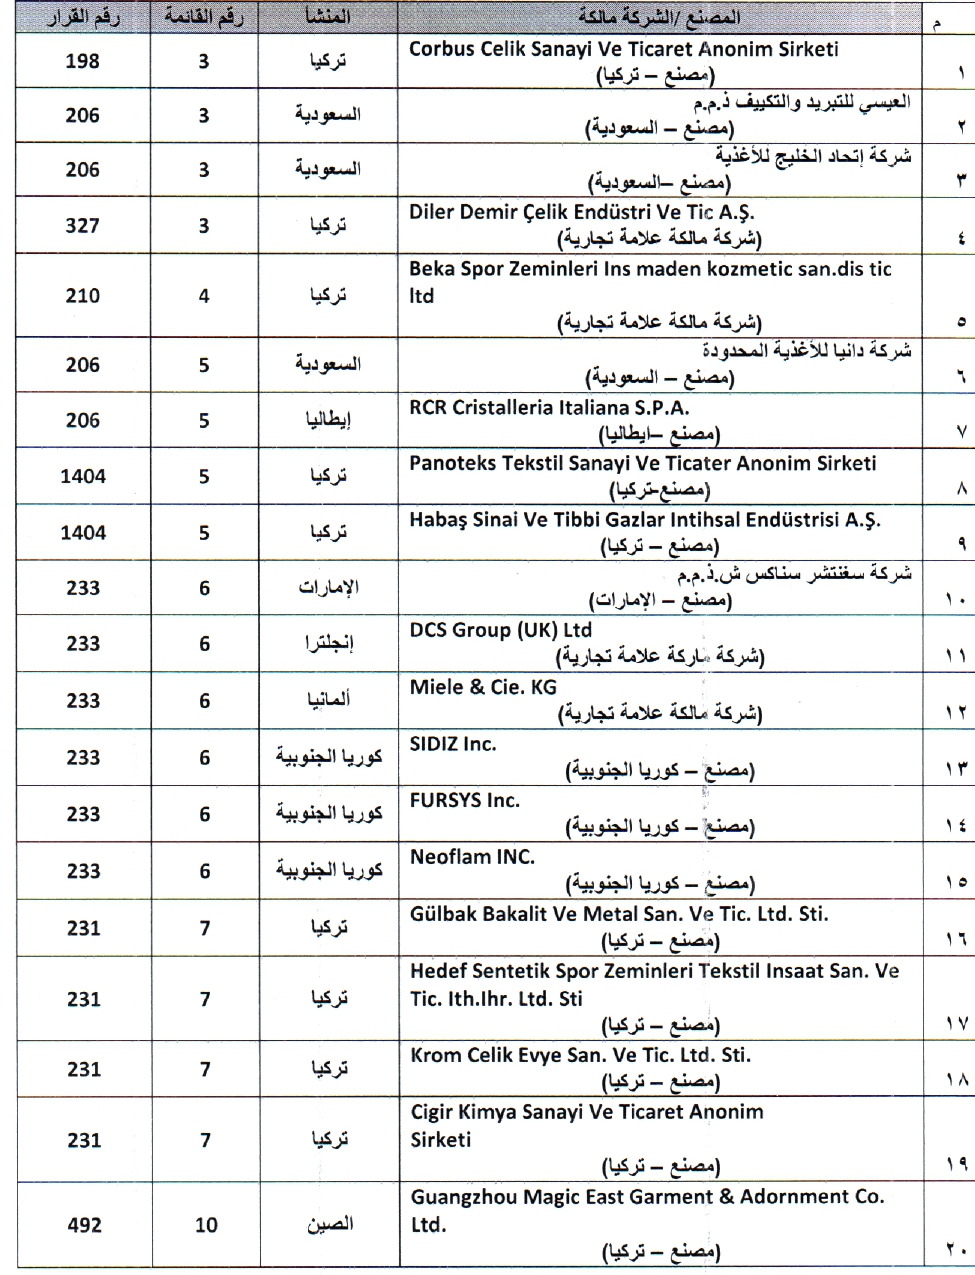 م المصنع /الشركة مالكة المنشأ رقم القائمة رقم القرار
١ Corbus Celik Sanayi Ve Ticaret Anonim Sirketi
(مصنع – تركيا) تركيا 3 198
٢ العيسي للتبريد والتكييف ذ.م.م
(مصنع – السعودية) السعودية 3 206
٣ شركة إتحاد الخليج للأغذية
(مصنع –السعودية) السعودية 3 206
٤ Diler Demir Çelik Endüstri Ve Tic A.Ş.
(شركة مالكة علامة تجارية) تركيا 3 327
٥ Beka Spor Zeminleri Ins maden kozmetic san.dis tic
ltd
(شركة مالكة علامة تجارية) تركيا 4 210
٦ شركة دانيا للأغذية المحدودة
(مصنع – السعودية) السعودية 5 206
٧ RCR Cristalleria Italiana S.P.A.
(مصنع –ايطاليا) إيطاليا 5 206
٨ Panoteks Tekstil Sanayi Ve Ticater Anonim Sirketi
(مصنع-تركيا) تركيا 5 1404
٩ Habaş Sinai Ve Tibbi Gazlar Intihsal Endüstrisi A.Ş.
(مصنع – تركيا) تركيا 5 1404
١٠ شركة سغنتشر سناكس ش.ذ.م.م
(مصنع – الإمارات) الإمارات 6 233
١١ DCS Group (UK) Ltd
(شركة ماركة علامة تجارية) إنجلترا 6 233
١٢ Miele & Cie. KG
(شركة مالكة علامة تجارية) ألمانيا 6 233
١٣ SIDIZ Inc.
(مصنع – كوريا الجنوبية) كوريا الجنوبية 6 233
١٤ FURSYS Inc.
(مصنع – كوريا الجنوبية) كوريا الجنوبية 6 233
١٥ Neoflam INC.
(مصنع – كوريا الجنوبية) كوريا الجنوبية 6 233
١٦ Gülbak Bakalit Ve Metal San. Ve Tic. Ltd. Sti.
(مصنع – تركيا) تركيا 7 231
١٧ Hedef Sentetik Spor Zeminleri Tekstil Insaat San. Ve
Tic. Ith.Ihr. Ltd. Sti
(مصنع – تركيا) تركيا 7 231
١٨ Krom Celik Evye San. Ve Tic. Ltd. Sti.
(مصنع – تركيا) تركيا 7 231
١٩ Cigir Kimya Sanayi Ve Ticaret Anonim
Sirketi
(مصنع – تركيا) تركيا 7 231
٢٠ Guangzhou Magic East Garment & Adornment Co.
Ltd.
(مصنع – تركيا) الصين 10 492